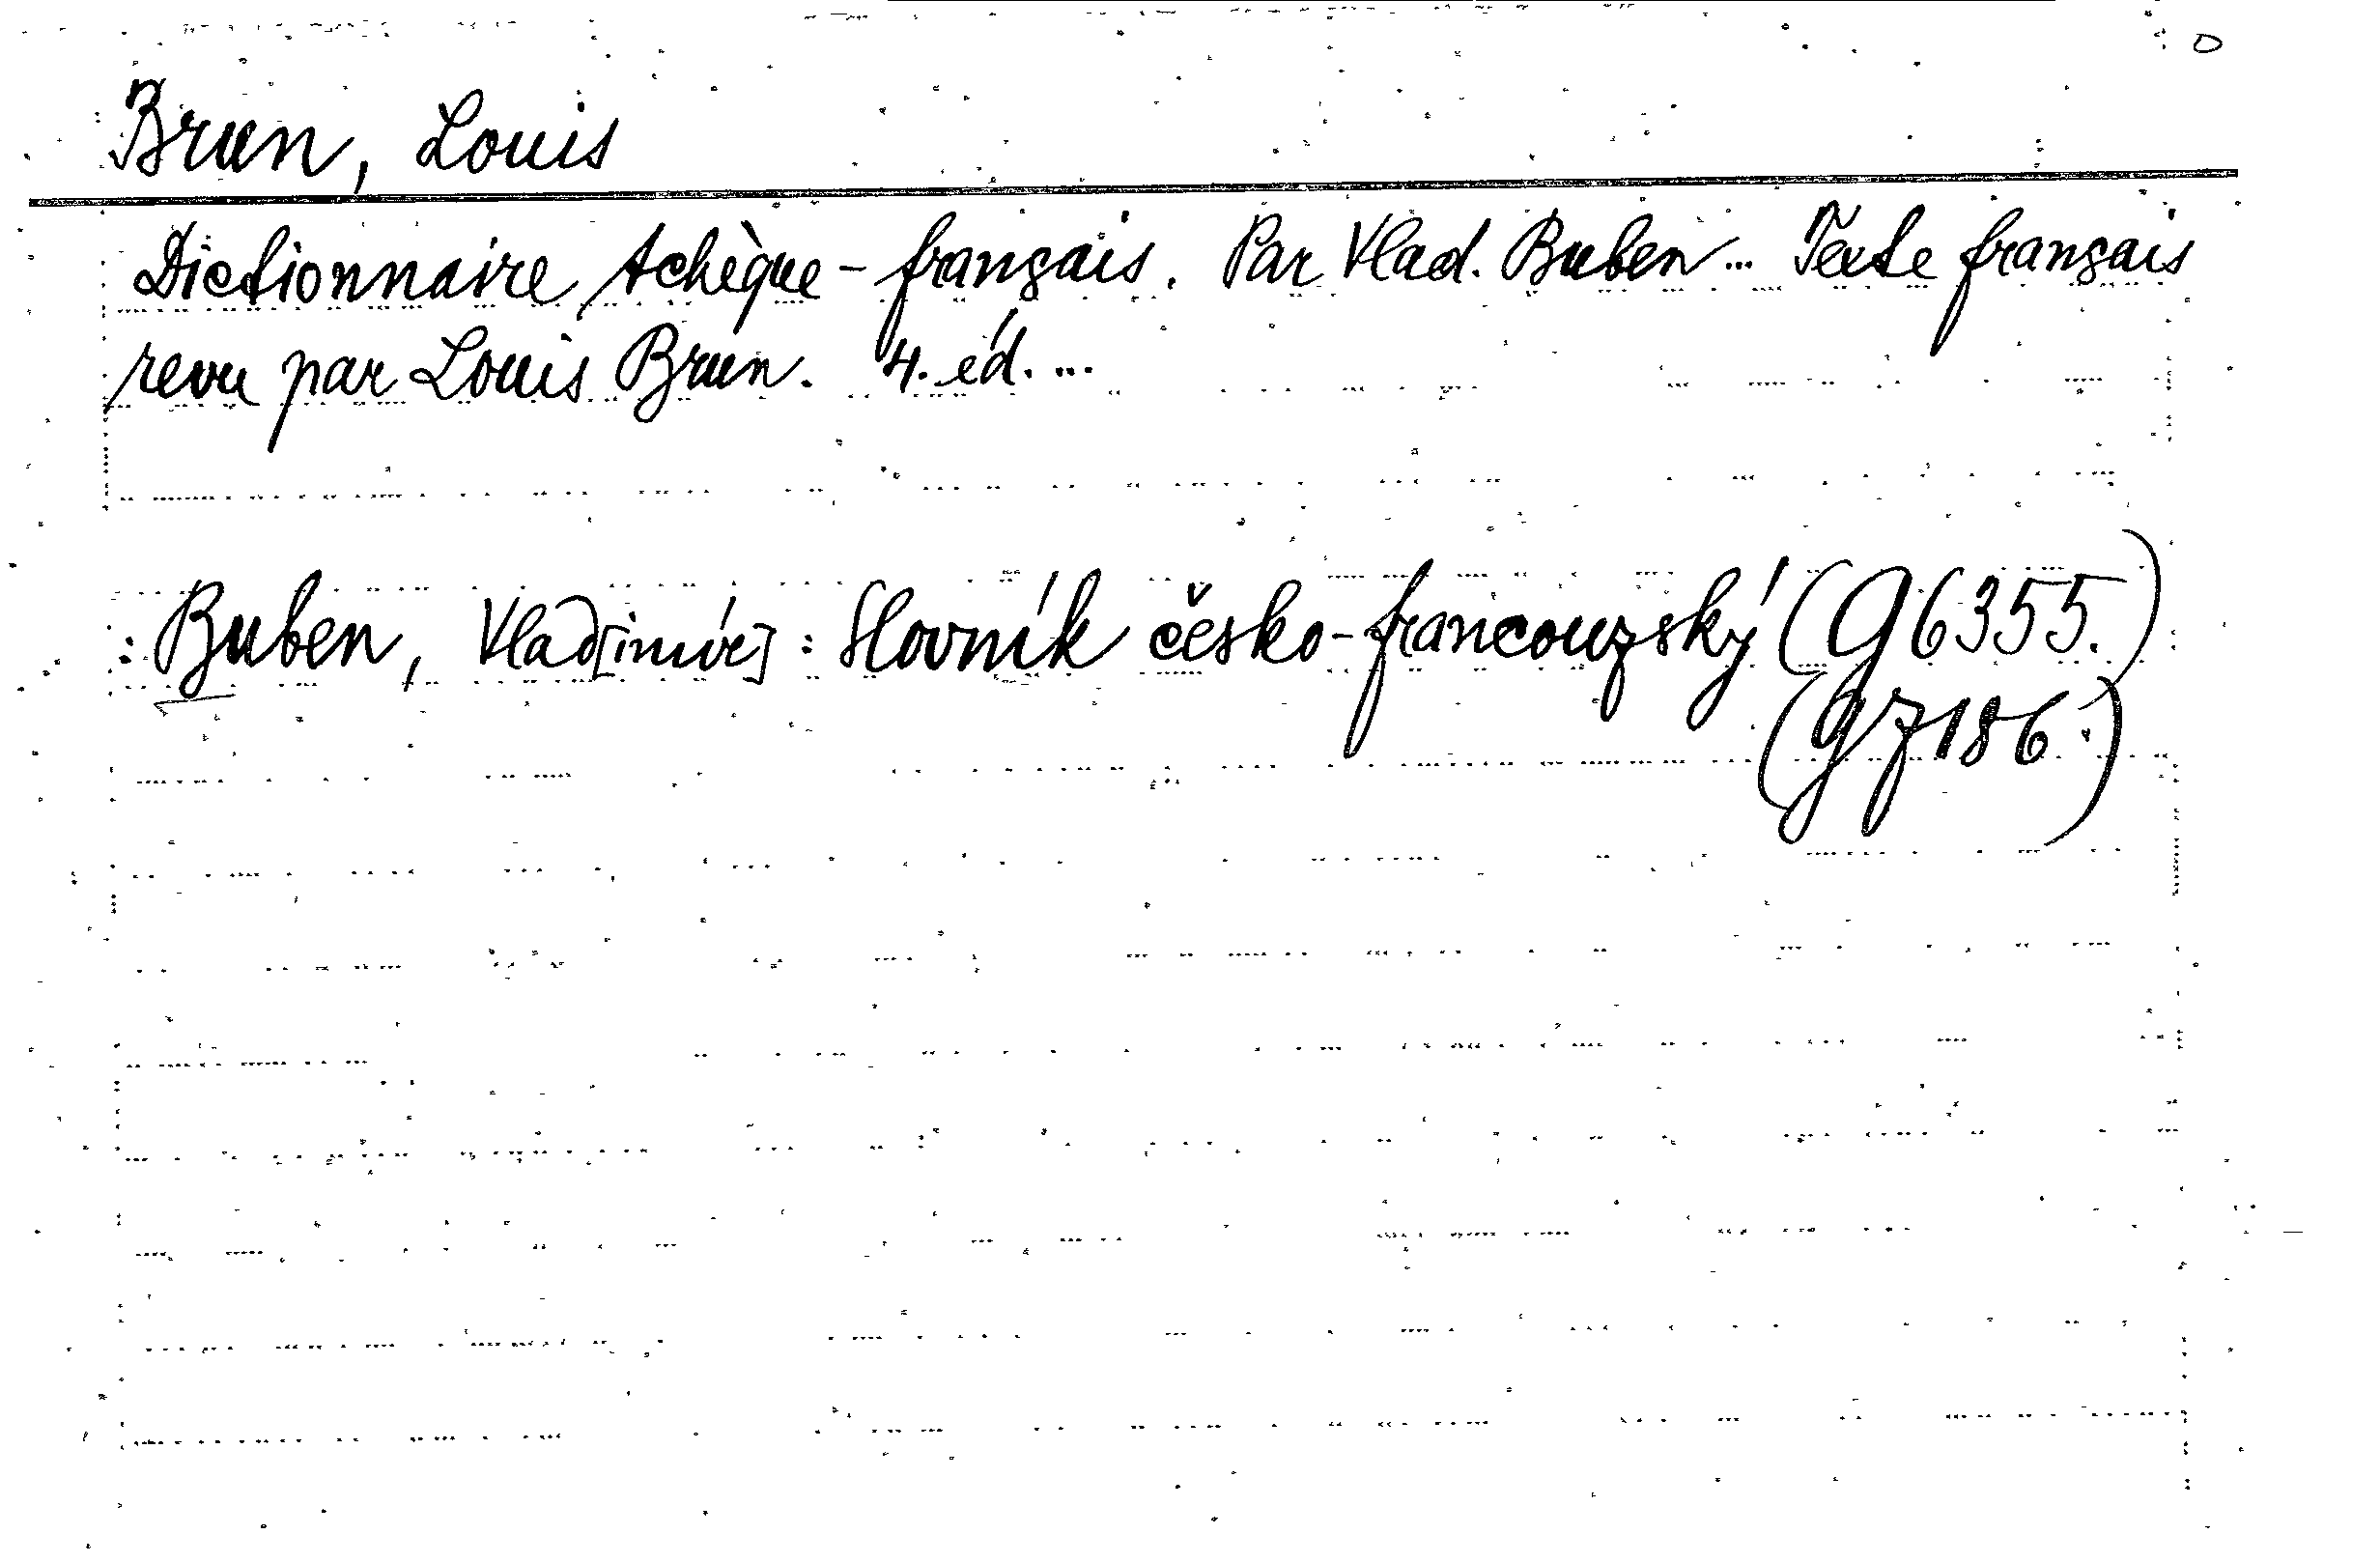 Brun, Louis
Dictionnaire tchèque-français. Par Vlad. Buben... Texte français
revu par Louis Brun. 4. éd. ...
: Buben, Vlad[imír] : Slovník česko-francouzský (G 6355.)
(g 7186.)